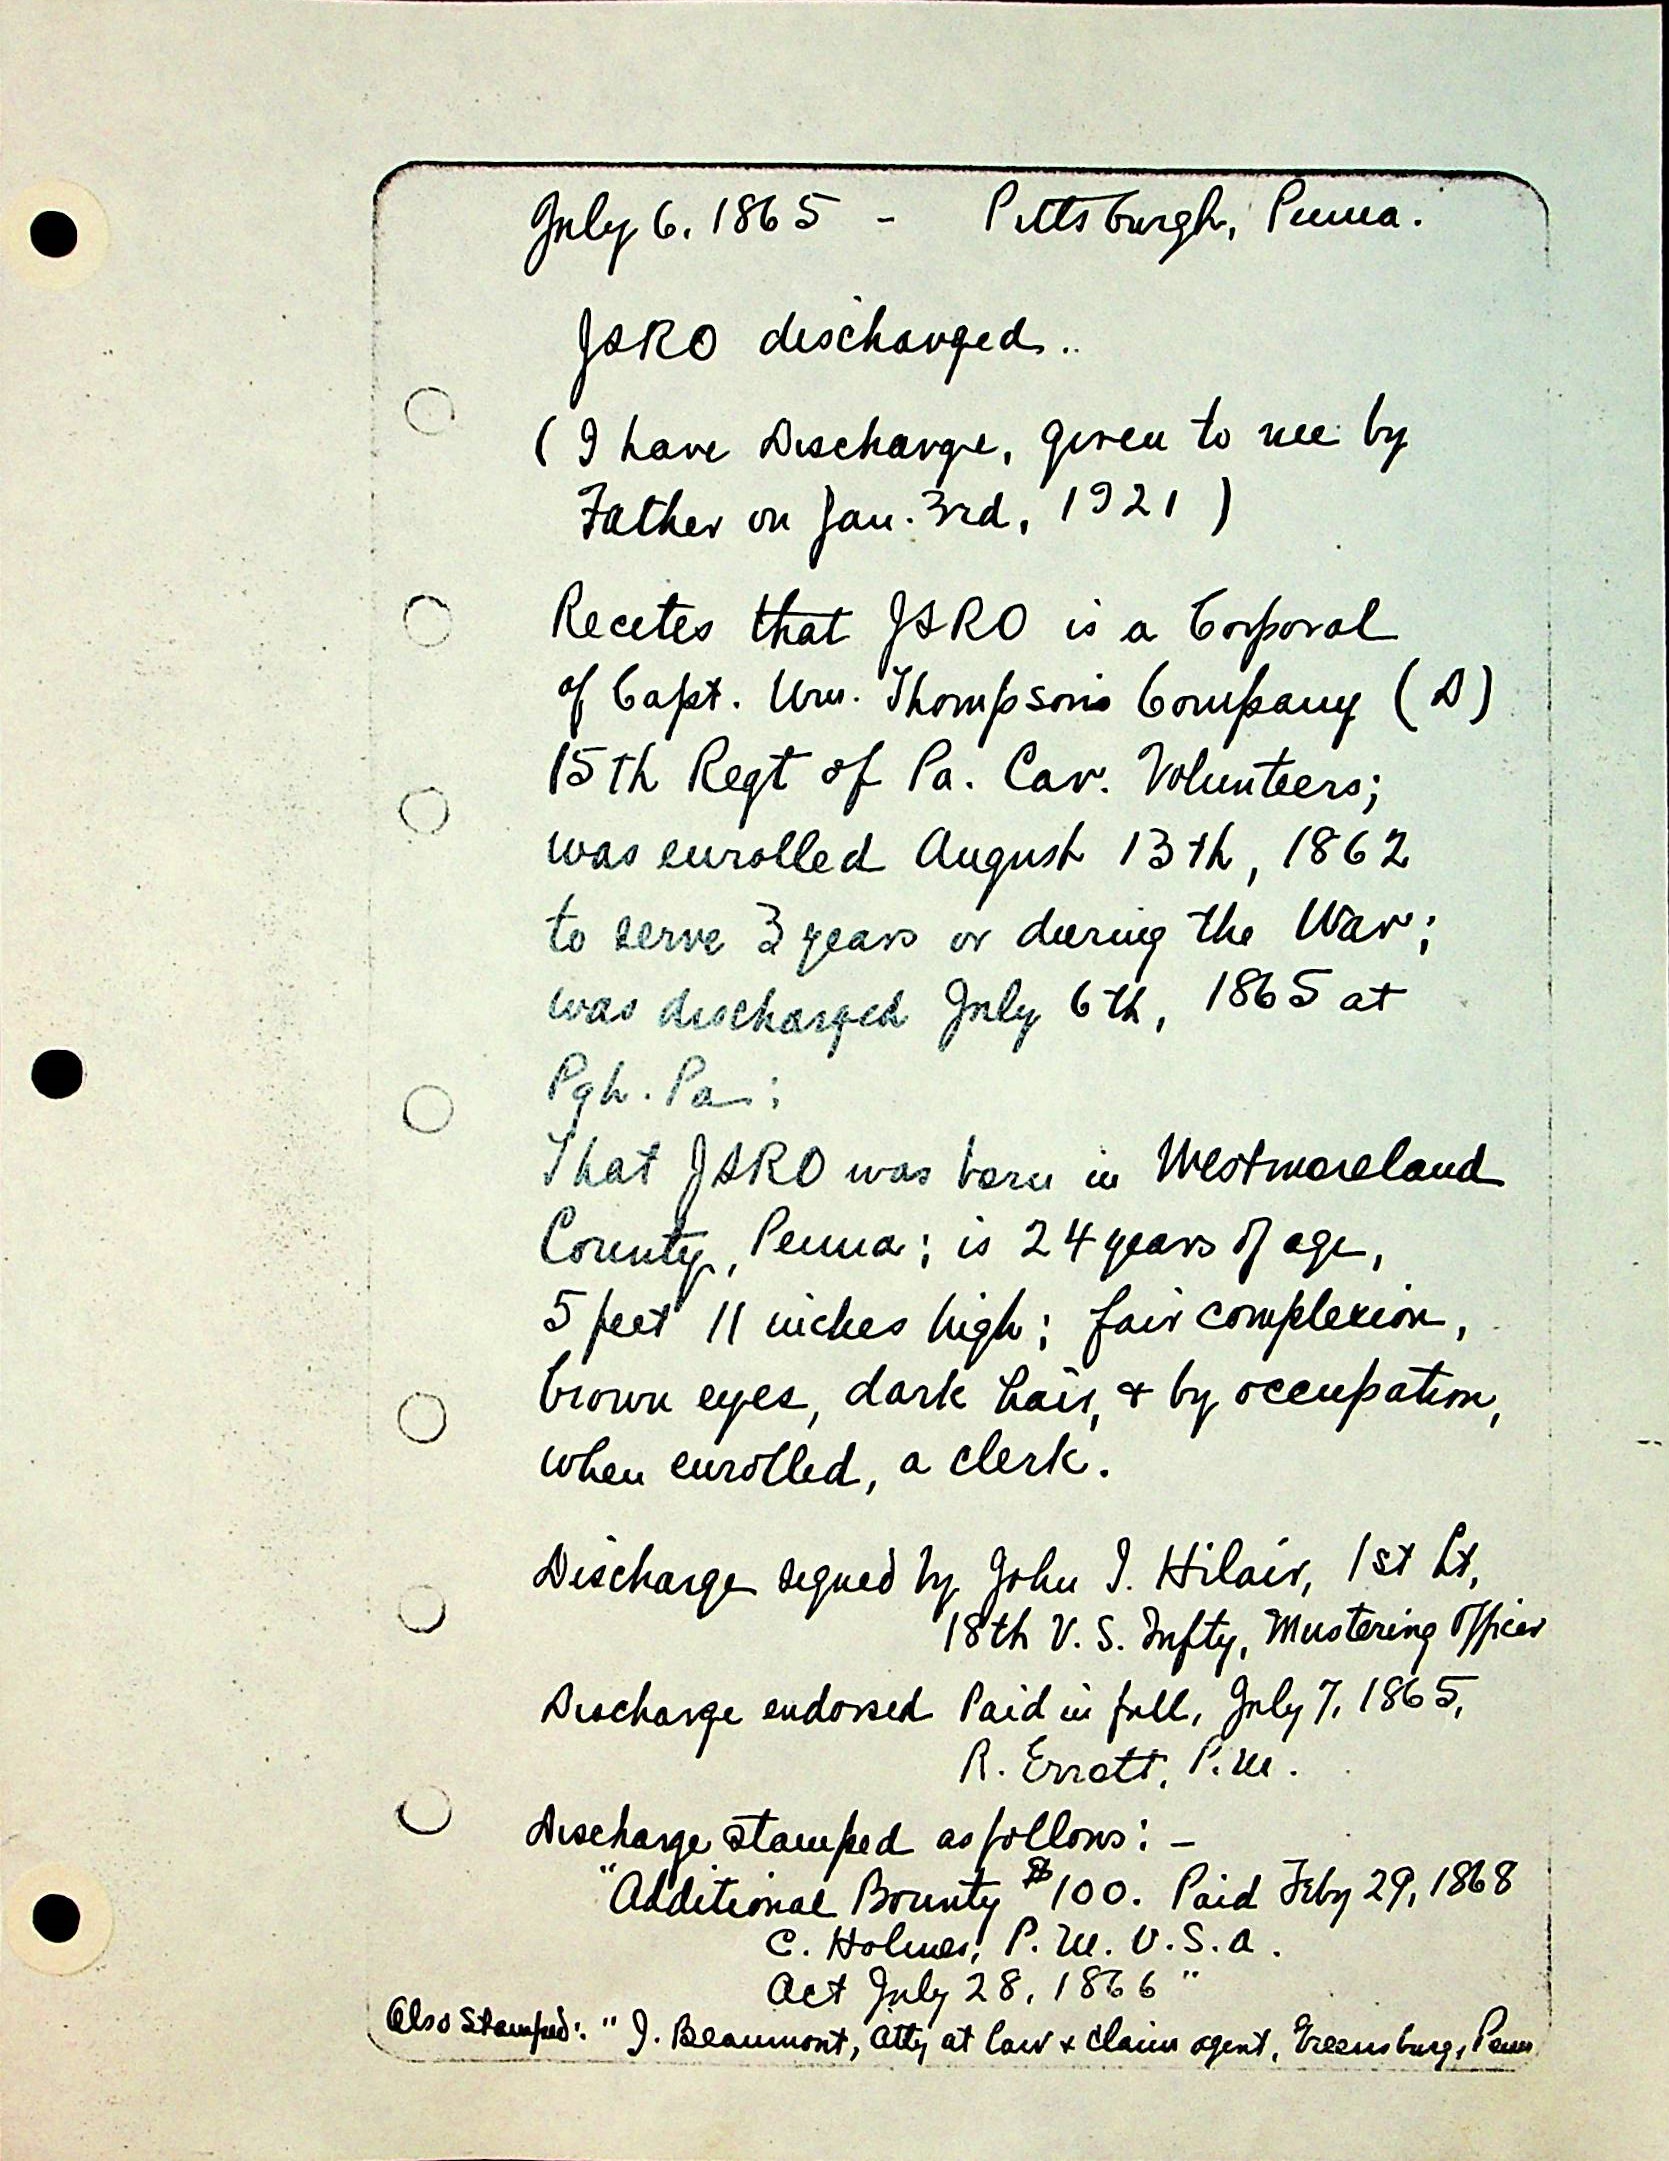 July 6, 1865 - Pittsburgh, Penna.
JSRO discharged..
( I have Discharge, given to me by
Father on Jan. 3rd, 1921 )
Recites that JSRO is a Corporal
of Capt. Wm. Thompson's Company (D)
15th Regt of Pa. Cav. Volunteers;
was enrolled August 13th, 1862
to serve 3 years or during the War;
was discharged July 6th, 1865 at
Pgh. Pa.;
That JSRO was born in Westmoreland
County, Penna; is 24 years of age,
5 feet 11 inches high; fair complexion,
brown eyes, dark hair, & by occupation,
when enrolled, a clerk.
Discharge signed by John I. Hilair, 1st Lt,
18th U.S. Infty, Mustering Officer
Discharge endorsed Paid in full, July 7, 1865,
R. Errett, P.M.
Discharge stamped as follows: -
"Additional Bounty $100. Paid Feby 29, 1868
C. Holmes, P.M. U.S.A.
Act July 28, 1866"
Also Stamped: "J. Beaumont, Atty at Law & Claim agent, Greensburg, Penn